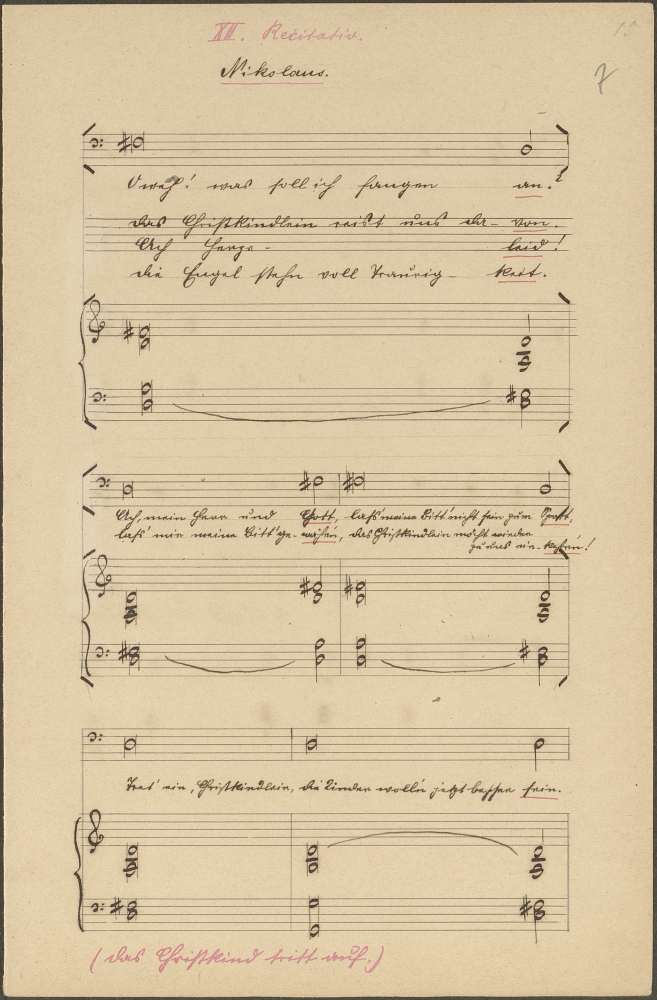 XII. Recitativ.
Nikolaus.
7
O weh! was soll ich fangen an!
das Christkindlein reist uns da- von.
Ach Herze- leid!
die Engel stehn voll Traurig- keit.
Ach, mein Herr und Gott, lass' meine Bitt' nicht sein zum Spott,
lass' mir meine Bitt' ge- , das Christkindlein möcht wieder
zu uns ein- kehren!
Tret' ein, Christkindlein, die Kinder wolln jetzt besser sein.
(das Christkind tritt auf.)